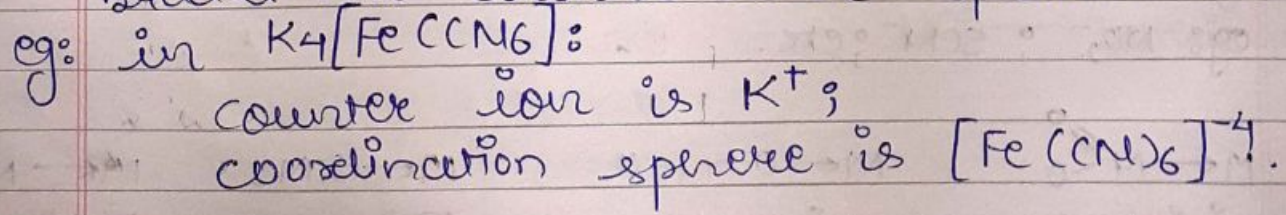 eg: in K4[Fe(CN6]:
counter ion is K+;
coordination sphere is [Fe(CN)6]-4.